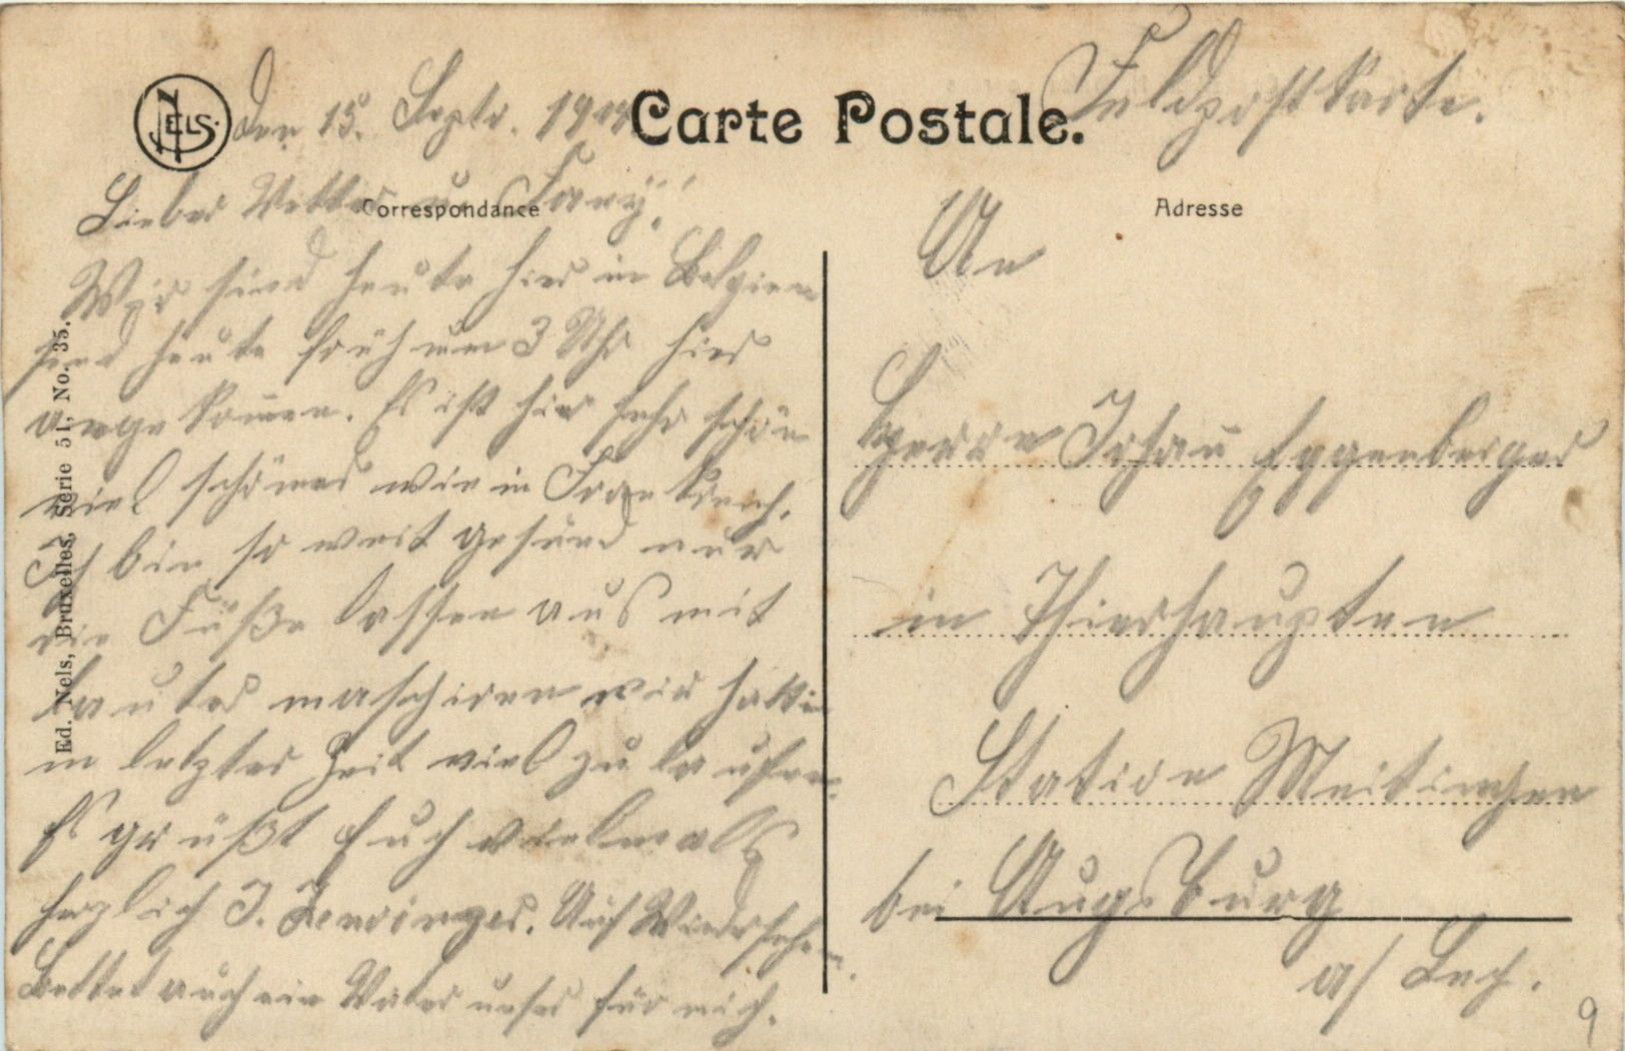 NELS.
Den 15. Septr. 1914
Carte Postale.
Feldpostkarte.
Correspondance
Adresse
Lieber Vetter u. Fany!
Wir sind heute hier in Belgien
sind heute früh um 3 Uhr hier
angekommen. Es ist hier sehr schön
viel schöner wie in Frankreich.
Ich bin so weit gesund nur
die Füße lassen aus mit
lauter maschiren wir hatten
in letzter Zeit viel zu laufen.
Es grüßt Euch vielmals
herzlich J. Auf Wiedersehen.
Bettet auch ein Vater unser für mich.
An
Herrn Johan Eggenberger
in Thierhaupten
Station Meitingen
bei Augsburg
a/ Lech.
Ed. Nels, Bruxelles, Serie 51, No. 35.
9